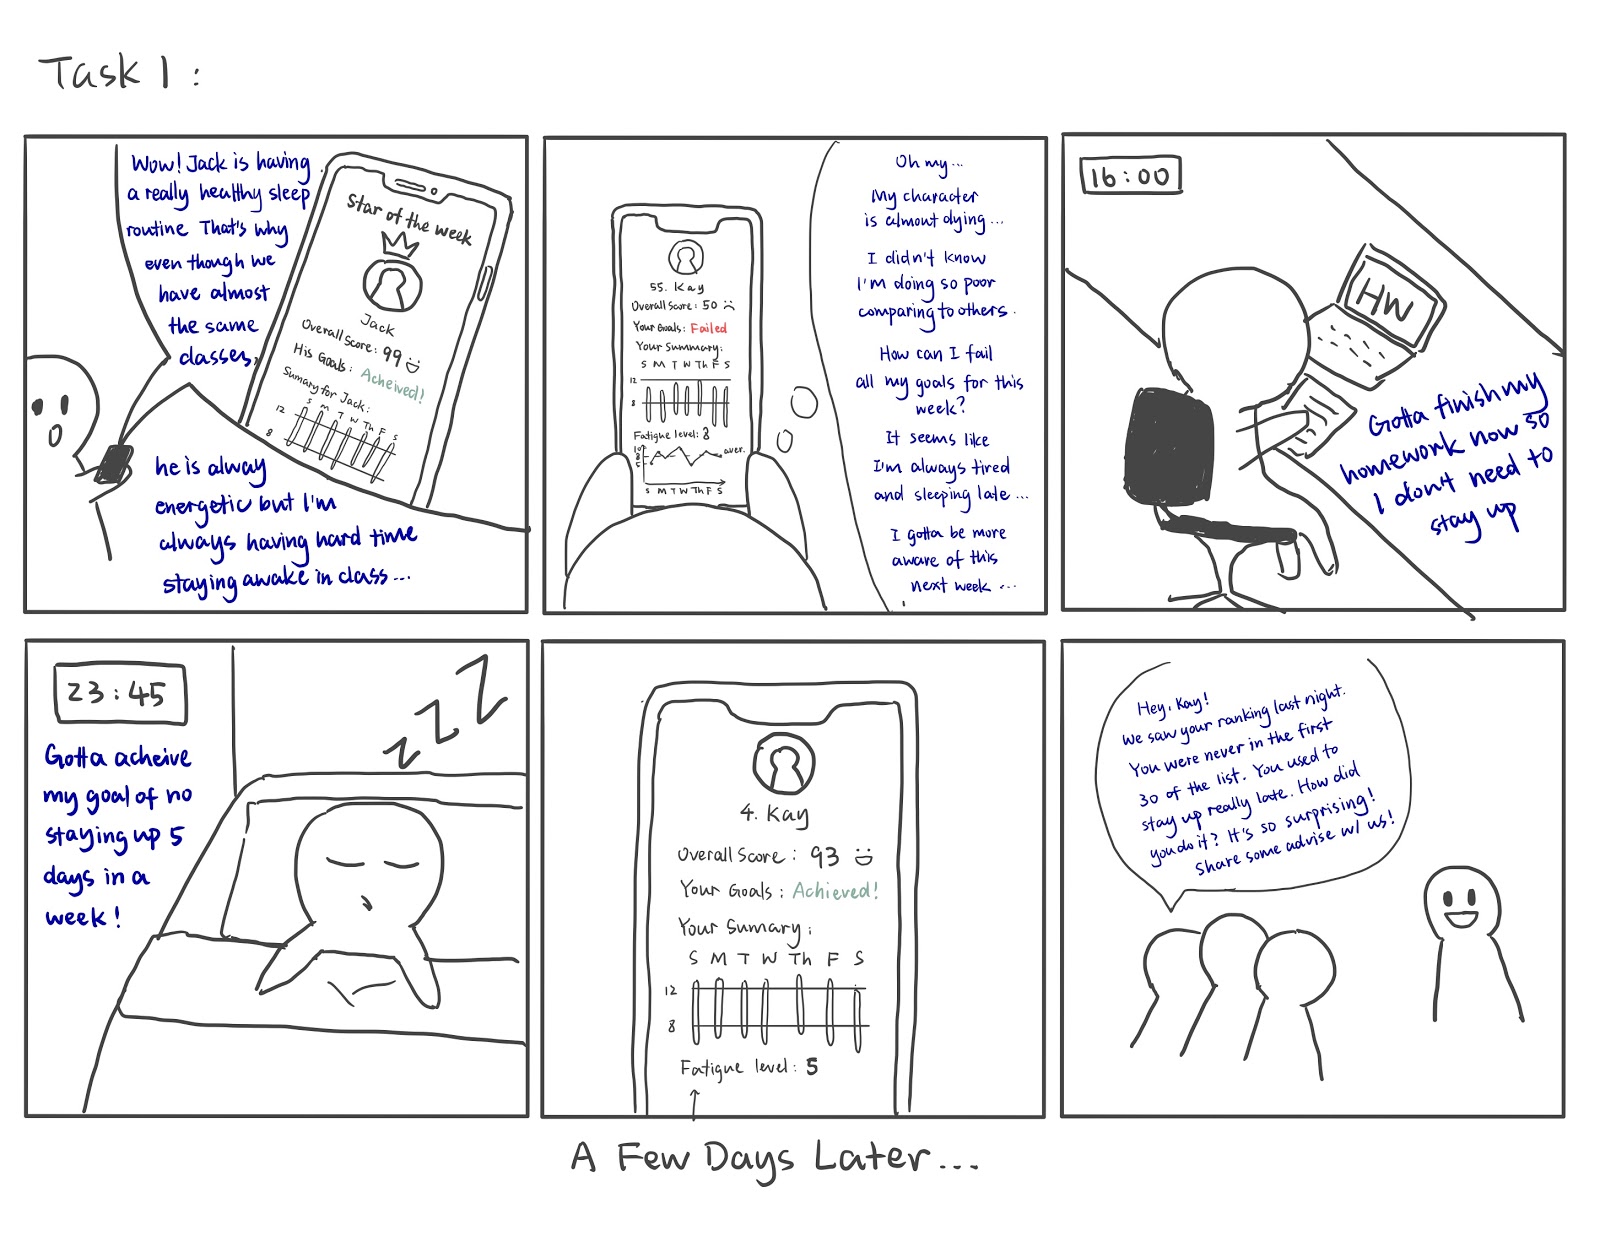 Task 1 :
Wow! Jack is having
a really healthy sleep
routine That's why
even though we
have almost
the same
classes,
he is alway
energetic but I'm
always having hard time
staying awake in class...
Star of the week
Jack
Overall Score: 99
His Goals: Acheived!
Sumary for Jack:
S M T W Th F S
12
8
55. Kay
Overall Score: 50
Your Goals: Failed
Your Summary:
S M T W Th F S
12
8
Fatigue level: 8
10
8
5
aver.
S M T W Th F S
Oh my...
My character
is almout dying...
I didn't know
I'm doing so poor
comparing to others.
How can I fail
all my goals for this
week?
It seems like
I'm always tired
and sleeping late...
I gotta be more
aware of this
next week ...
16:00
HW
Gotta finish my
homework now so
I don't need to
stay up
23:45
Gotta acheive
my goal of no
staying up 5
days in a
week!
4. Kay
Overall Score: 93
Your Goals: Achieved!
Your Sumary:
S M T W Th F S
12
8
Fatigue level: 5
A Few Days Later...
Hey, Kay!
We saw your ranking last night.
You were never in the first
30 of the list. You used to
stay up really late. How did
you do it? It's so surprising!
Share some advise w/ us!